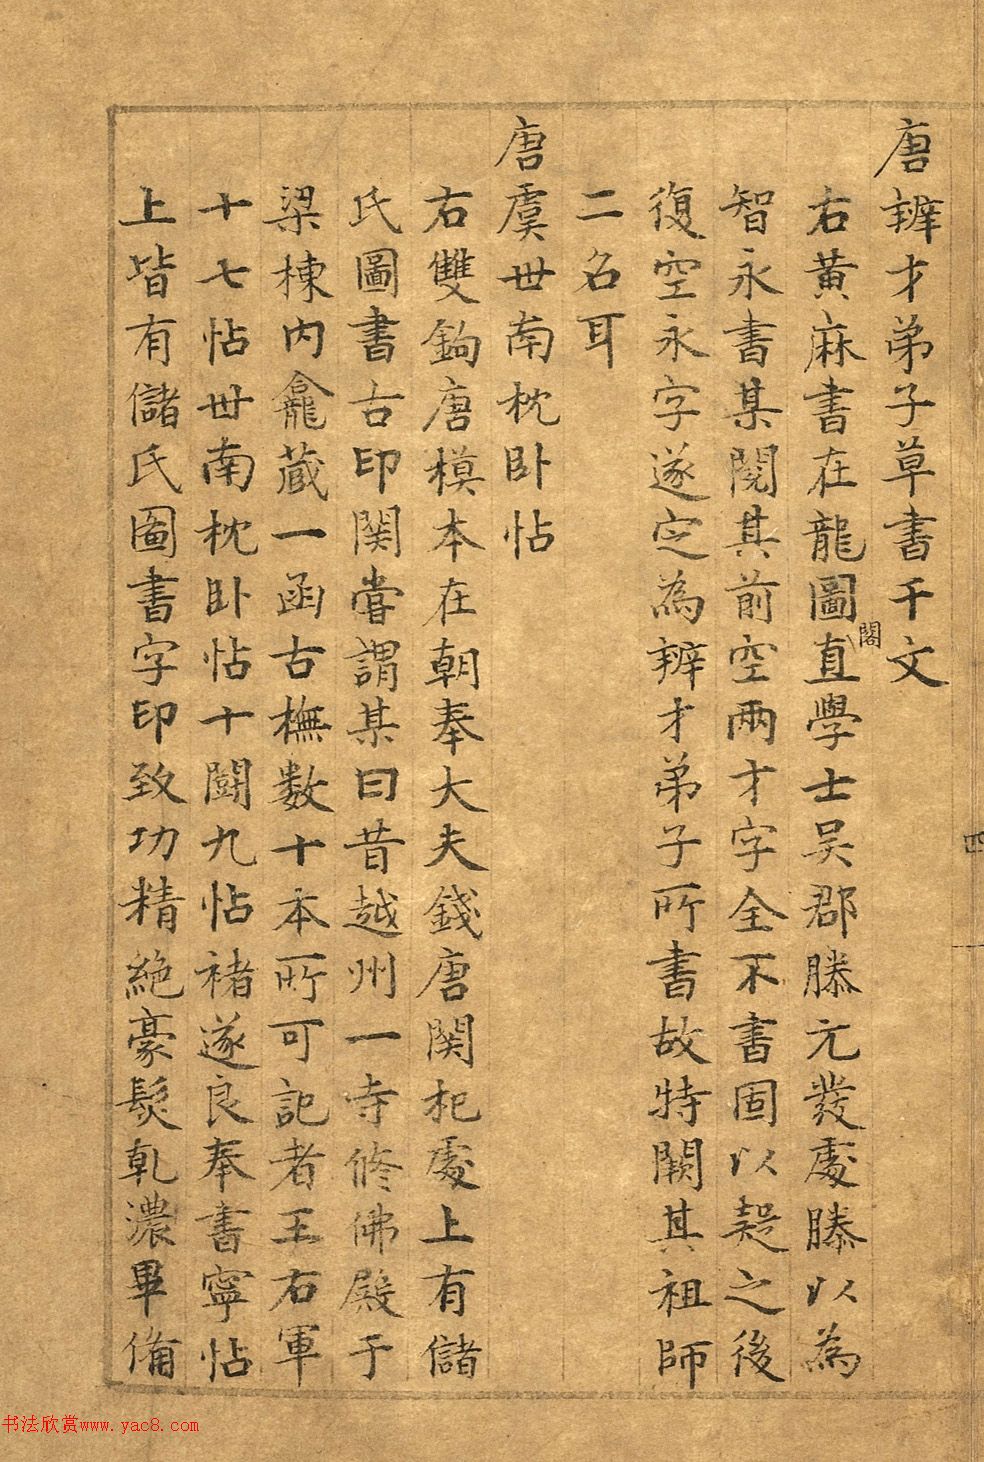 唐辨才弟子草書千文
右黄麻書在龍圖閣直學士吴郡滕元發處滕以為
智永書某閱其前空兩才字全不書固以疑之後
復空永字遂定為辨才弟子所書故特闕其祖師
二名耳
唐虞世南枕卧帖
右雙鉤唐模本在朝奉大夫錢唐関杞處上有儲
氏圖書古印関嘗謂某曰昔越州一寺修佛殿于
梁棟内龕藏一函古橅数十本所可記者王右軍
十七帖世南枕卧帖十鬭九帖褚遂良奉書寧帖
上皆有儲氏圖書字印致功精絶豪髮乹濃畢備
四
书法欣赏www.yac8.com